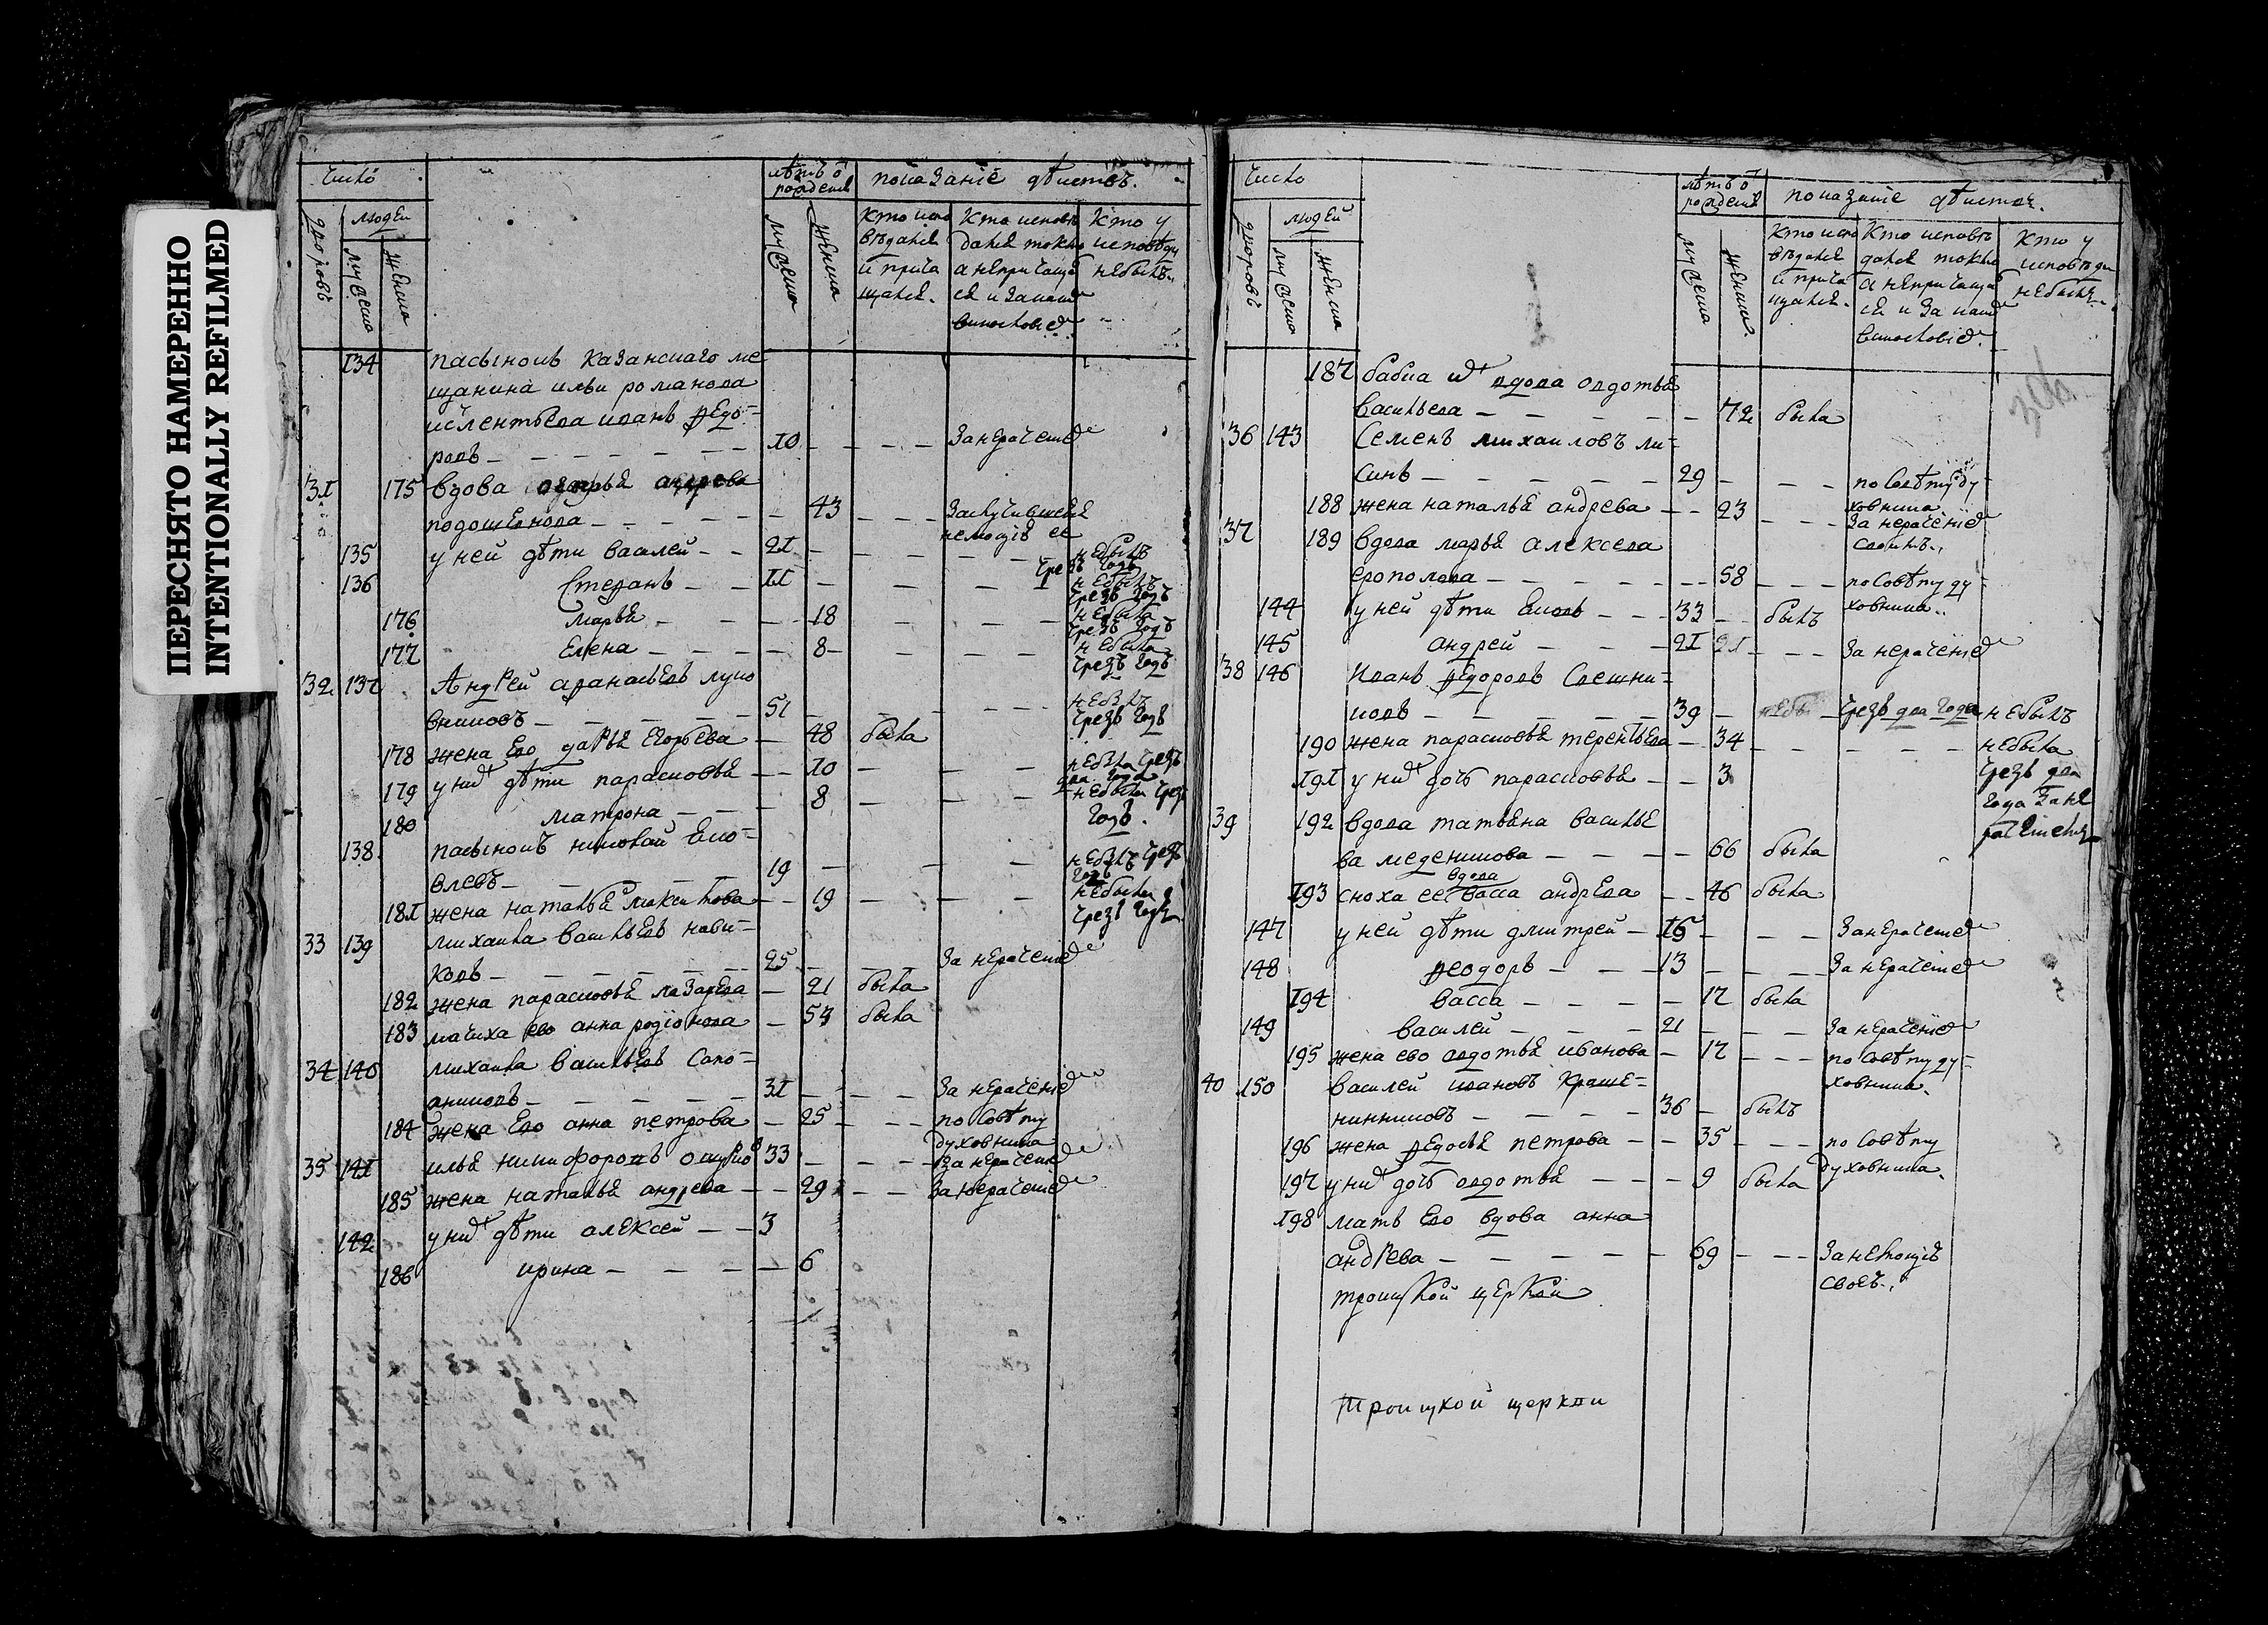 ПЕРЕСНЯТО НАМЕРЕННО
INTENTIONALLY REFILMED
число
лѣтъ ѿ рожденія
показаніе дѣйствъ.
дворовъ
людей
мужеска
женска
мужеска
женска
Кто испо
вѣдался
и прича
щался.
Кто исповѣ
дался токмо
а непричаща
ся и закаким
винословіем
Кто у
исповѣди
небылъ.
134 пасынокъ казанскаго ме
щанина ильи романова
иванъ Ѳедо-
ровъ 10 Занераченіем
31 175 вдова андреева
подошевнова 43
немощію ее
135 у ней дѣти василей 21 небылъ
чрезъ годъ
136 Степанъ 11 небылъ
чрезъ годъ
176 марья 18 небыла
чрезъ годъ
177 Елена 8 небыла
чрезъ годъ
32 137 Андрей аѳанасьевъ луко
вниковъ 51 небылъ
чрезъ годъ
178 жена Ево дарья Егорьева 48 была
179 у них дѣти парасковья 10 небыла чрезъ
два года
180 матрона 8 небыла чрезъ
годъ.
138 пасынокъ николай Еко-
влевъ 19 небылъ чрезъ
годъ
181 жена наталья максимова 19 небыла
чрезъ годъ
33 139 михаила васильевъ нови-
ковъ 25 За нераченіем
182 жена парасковья лазарева 21 была
183 мачиха ево анна родіонова 53 была
34 140 михаила васильевъ Сапо-
жниковъ 31 За нераченіем
184 жена Ево анна петрова 25 по совѣту
духовника
35 141 илья никифоровъ 33 За нераченіем
185 жена наталья андреева 29 За нераченіем
142 у них дѣти алексей 3
186 ирина 6
число
лѣтъ ѿ рожденія
показаніе дѣйствъ.
дворовъ
людей
мужеска
женска
мужеска
женска
Кто испо
вѣдался
и прича
щался.
Кто исповѣ
дался токмо
а непричаща
ся и За каким
винословіем.
Кто у
исповѣди
небылъ.
187 бабка их вдова овдотья
васильева 72 была
36 143 Семенъ михаиловъ ли-
синъ 29 по совѣту ду-
ховника
188 жена наталья андреева 23 За нераченіем
своимъ.
37 189 вдова марья алексеева
ерополова 58 по совѣту ду-
ховника.
144 у ней дѣти Ековъ 33 былъ
145 андрей 21 21 За нераченіем
38 146 Иванъ Ѳедоровъ Свешни-
ковъ 39 небы чрезъ два года небылъ
190 жена парасковья терентьева 34 небыла
191 у них дочь парасковья 3 чрезъ два
года Зане
раченіемъ
39 192 вдова татьяна василье
ва меденикова 66 была
вдова
193 сноха ее васса андреева 46 была
147 у ней дѣти дмитрей 15 Занераченіем
148 Ѳеодоръ 13 За нераченіем
194 васса 17 была
149 василей 21 За нераченіем
195 жена ево овдотья иванова 17 по совѣту ду-
ховника.
40 150 василей ивановъ краше-
нинниковъ 36 былъ
196 жена Ѳедосья петрова 35 по совѣту
духовника.
197 у них дочь овдотья 9 была
198 мать Ево вдова анна
андреева 69 За немощію
своею.
троицкой церкви
Троицкой церкви